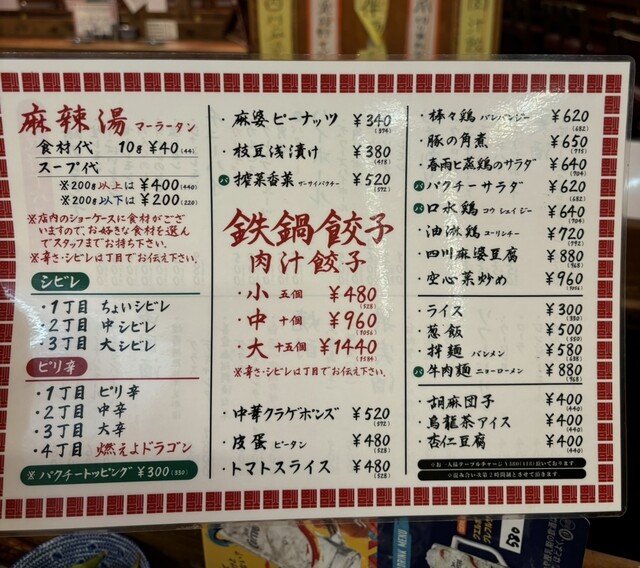 麻辣湯 マーラータン
食材代 10g ¥40(44)
スープ代
※200g以上は ¥400(440)
※200g以下は ¥200(220)
※店内のショーケースに食材がござ
いますので、お好きな食材を選ん
でスタッフまでお持ち下さい。
※辛さ・シビレは丁目でお伝え下さい。
シビレ
・1丁目 ちょいシビレ
・2丁目 中シビレ
・3丁目 大シビレ
ピリ辛
・1丁目 ピリ辛
・2丁目 中辛
・3丁目 大辛
・4丁目 燃えよドラゴン
※パクチートッピング ¥300(330)
・麻婆ピーナッツ ¥340(374)
・枝豆浅漬け ¥380(418)
パ 搾菜香菜 ザーサイパクチー ¥520(572)
鉄鍋餃子
肉汁餃子
・小 五個 ¥480(528)
・中 十個 ¥960(1056)
・大 十五個 ¥1440(1584)
※辛さ・シビレは丁目でお伝え下さい。
・中華クラゲポンズ ¥520(572)
・皮蛋 ピータン ¥480(528)
・トマトスライス ¥480(528)
・棒々鶏 バンバンジー ¥620(682)
・豚の角煮 ¥650(715)
・春雨ヒ蒸鶏のサラダ ¥640(704)
パ パクチーサラダ ¥620(682)
パ 口水鶏 コウシュイジー ¥640(704)
・油淋鶏 ユーリンチー ¥720(792)
・四川麻婆豆腐 ¥880(968)
・空心菜炒め ¥960(1056)
・ライス ¥300(330)
・葱飯 ¥500(550)
・拌麺 バンメン ¥580(638)
パ 牛肉麺 ニューローメン ¥880(968)
・胡麻団子 ¥400(440)
・烏龍茶アイス ¥400(440)
・杏仁豆腐 ¥400(440)
※お一人様テーブルチャージ¥100(110)頂いております。
※混み合い次第2時間制とさせて頂きます。
DRINK MENU